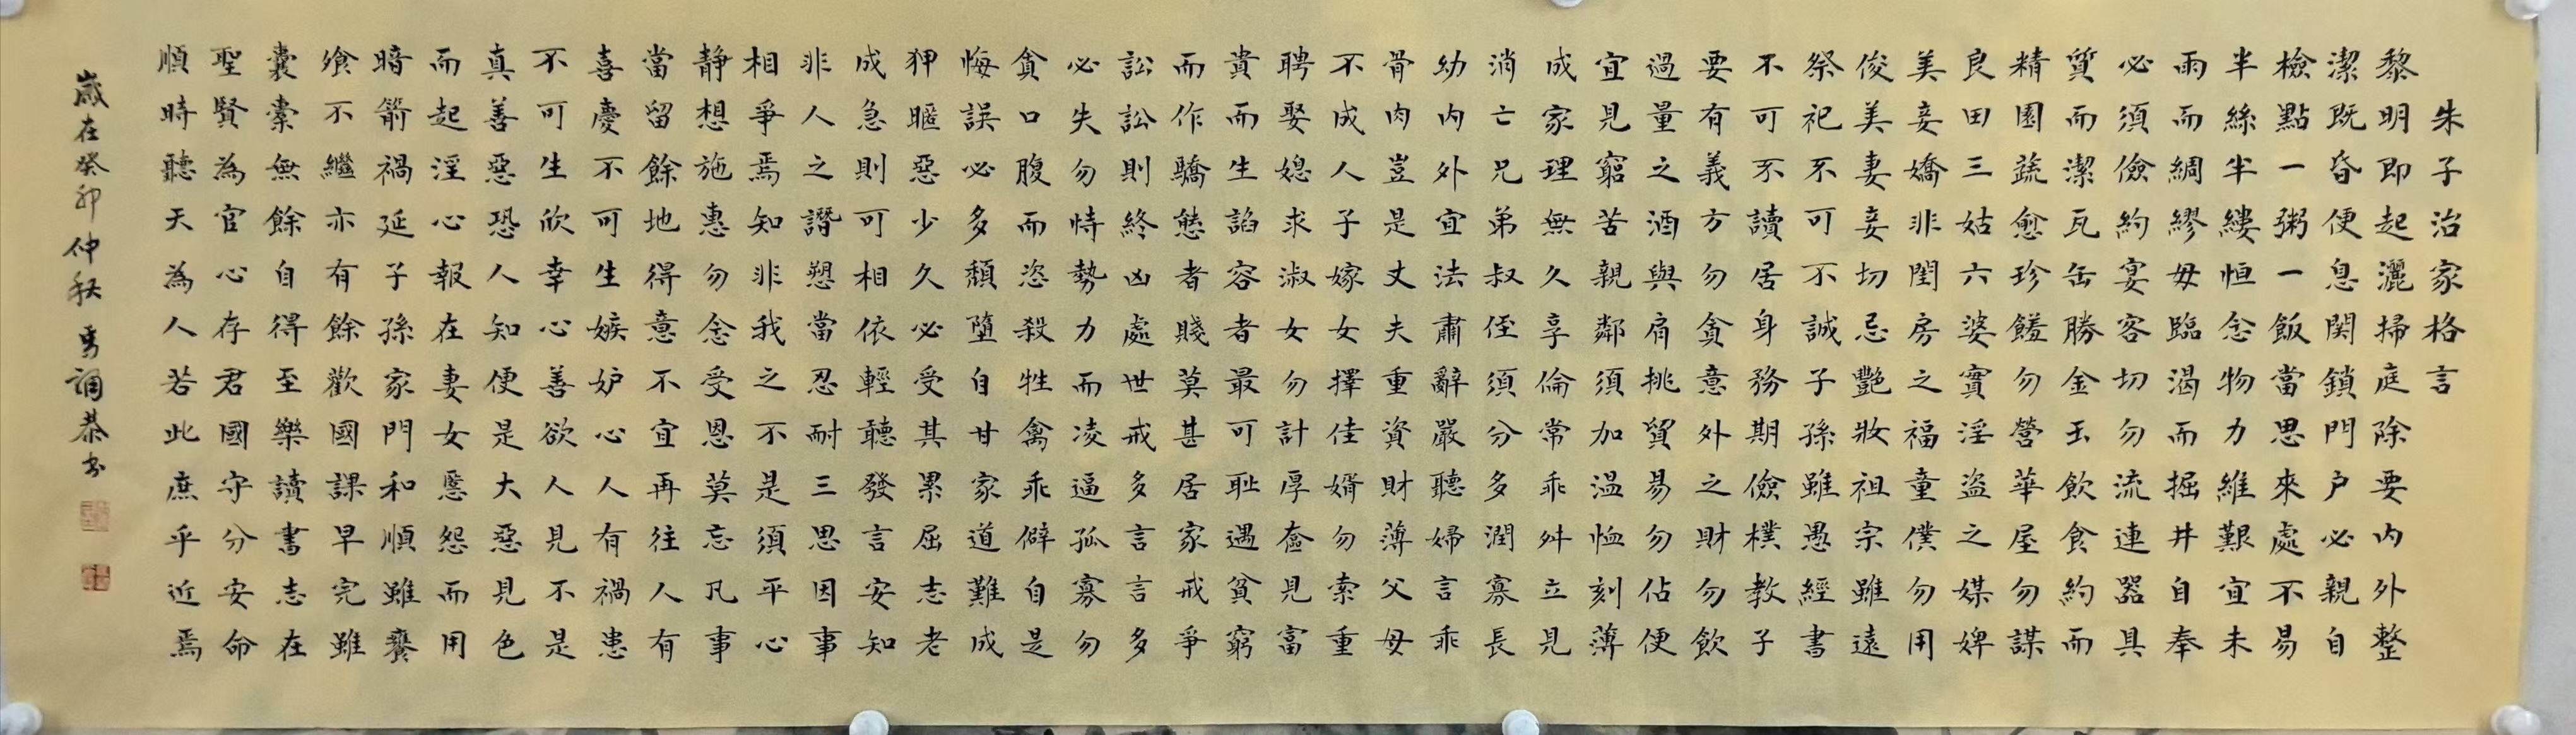 朱子治家格言
黎明即起灑掃庭除要内外整
潔既昏便息関鎖門户必親自
檢點一粥一飯當思來處不易
半絲半縷恒念物力維艱宜未
雨而綢繆毋臨渴而掘井自奉
必須儉約宴客切勿流連器具
質而潔瓦缶勝金玉飲食約而
精園蔬愈珍饈勿營華屋勿謀
良田三姑六婆實淫盜之媒婢
美妾嬌非閨房之福童僕勿用
俊美妻妾切忌艷妝祖宗雖遠
祭祀不可不誠子孫雖愚經書
不可不讀居身務期儉樸教子
要有義方勿貪意外之財勿飲
過量之酒與肩挑貿易勿佔便
宜見窮苦親鄰須加温恤刻薄
成家理無久享倫常乖舛立見
消亡兄弟叔侄須分多潤寡長
幼内外宜法肅辭嚴聽婦言乖
骨肉豈是丈夫重資財薄父母
不成人子嫁女擇佳婿勿索重
聘娶媳求淑女勿計厚奩見富
貴而生諂容者最可耻遇貧窮
而作驕態者賤莫甚居家戒爭
訟訟則終凶處世戒多言言多
必失勿恃勢力而凌逼孤寡勿
貪口腹而恣殺牲禽乖僻自是
悔誤必多頹墮自甘家道難成
狎暱惡少久必受其累屈志老
成急則可相依輕聽發言安知
非人之譖愬當忍耐三思因事
相爭焉知非我之不是須平心
静想施惠勿念受恩莫忘凡事
當留餘地得意不宜再往人有
喜慶不可生嫉妒心人有禍患
不可生欣幸心善欲人見不是
真善惡恐人知便是大惡見色
而起淫心報在妻女慝怨而用
暗箭禍延子孫家門和順雖饔
飧不繼亦有餘歡國課早完雖
囊橐無餘自得至樂讀書志在
聖賢為官心存君國守分安命
順時聽天為人若此庶乎近焉
歲在癸卯仲秋勇誦恭书